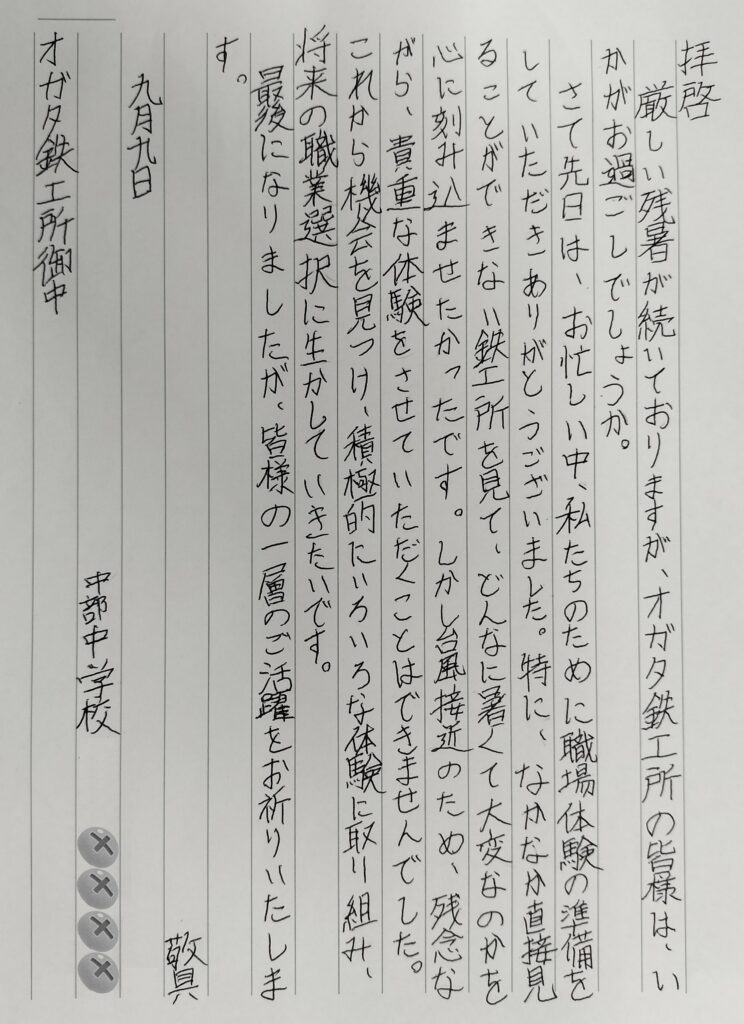 拝啓
厳しい残暑が続いておりますが、オガタ鉄工所の皆様は、い
かがお過ごしでしょうか。
さて先日は、お忙しい中、私たちのために職場体験の準備を
していただきありがとうございました。特に、なかなか直接見
ることができない鉄工所を見て、どんなに暑くて大変なのかを
心に刻み込ませたかったです。しかし台風接近のため、残念な
がら、貴重な体験をさせていただくことはできませんでした。
これから機会を見つけ、積極的にいろいろな体験に取り組み、
将来の職業選択に生かしていきたいです。
最後になりましたが、皆様の一層のご活躍をお祈りいたしま
す。
敬具
九月九日
中部中学校
オガタ鉄工所御中